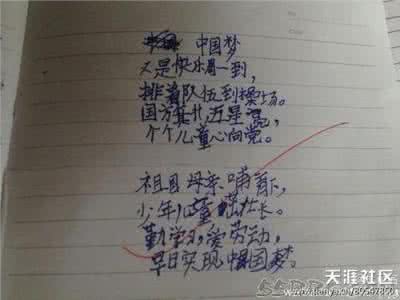 中国梦
又是快乐周一到，
排着队伍到操场。
国旗升，五星亮，
个个儿童心向党。
祖国母亲哺育下，
少年儿童茁壮长。
勤学习，爱劳动，
早日实现中国梦。
天涯社区